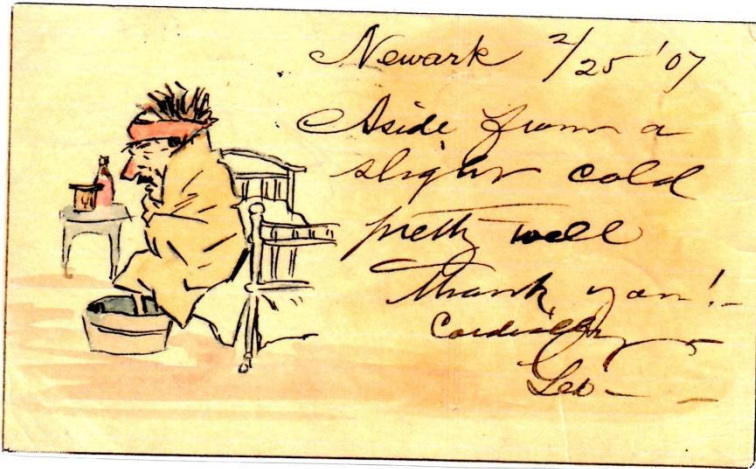 Newark 2/25 '07
Aside from a
slight cold
pretty well
thank you!-
Cordially
Geo-